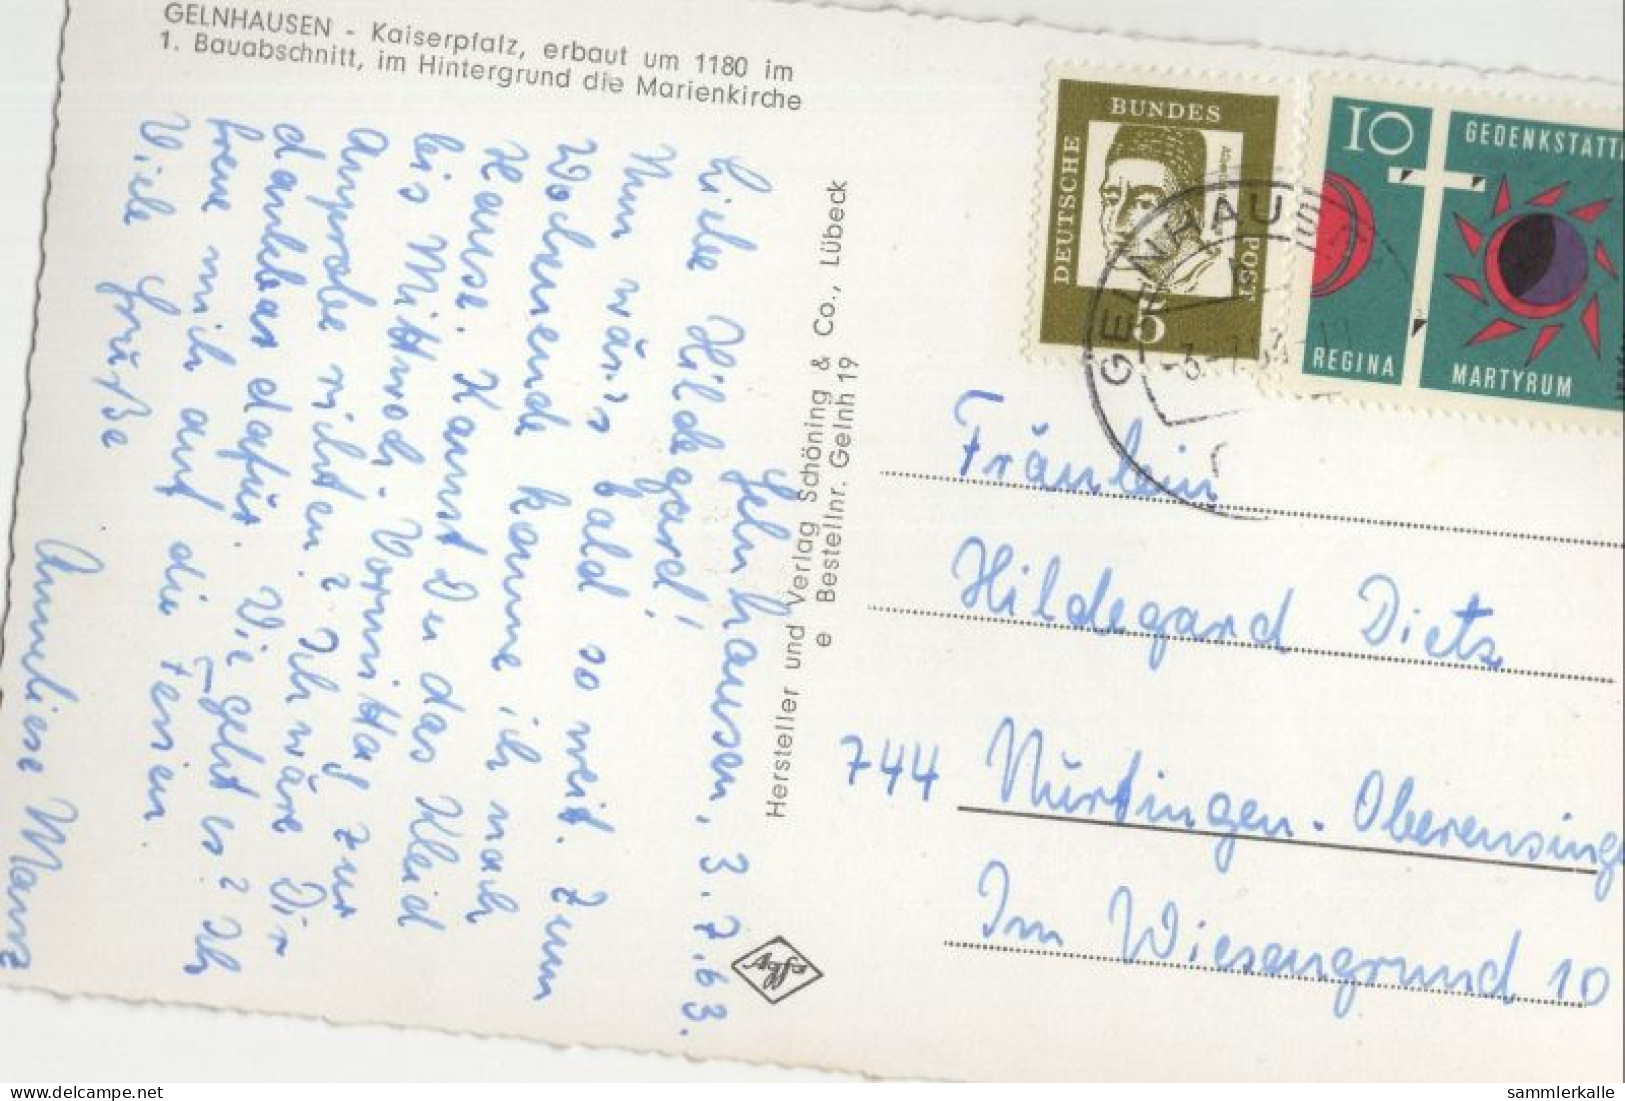 GELNHAUSEN - Kaiserpfalz, erbaut um 1180 im
1. Bauabschnitt, im Hintergrund die Marienkirche
Gelnhausen, 3.7.63.
Liebe Hildegard!
Nun wär's bald so weit. Zum
Wochenende komme ich nach
Hause. Kannst Du das Kleid
bis Mittwoch Vormittag zur
Anprobe richten? Ich wäre Dir
dankbar dafür. Wie geht es? Ich
freue mich auf die Ferien
Viele Grüße
Anneliese
Hersteller und Verlag Schöning & Co., Lübeck
e Bestellnr. Gelnh 19
Agfa
DEUTSCHE
BUNDES
POST
5
10
GEDENKSTATT
REGINA
MARTYRUM
GELNHAUSEN
Fräulein
Hildegard Dietz
744 Nürtingen-Oberensinge
Im Wiesengrund 10
delcampe.net
sammlerkalle